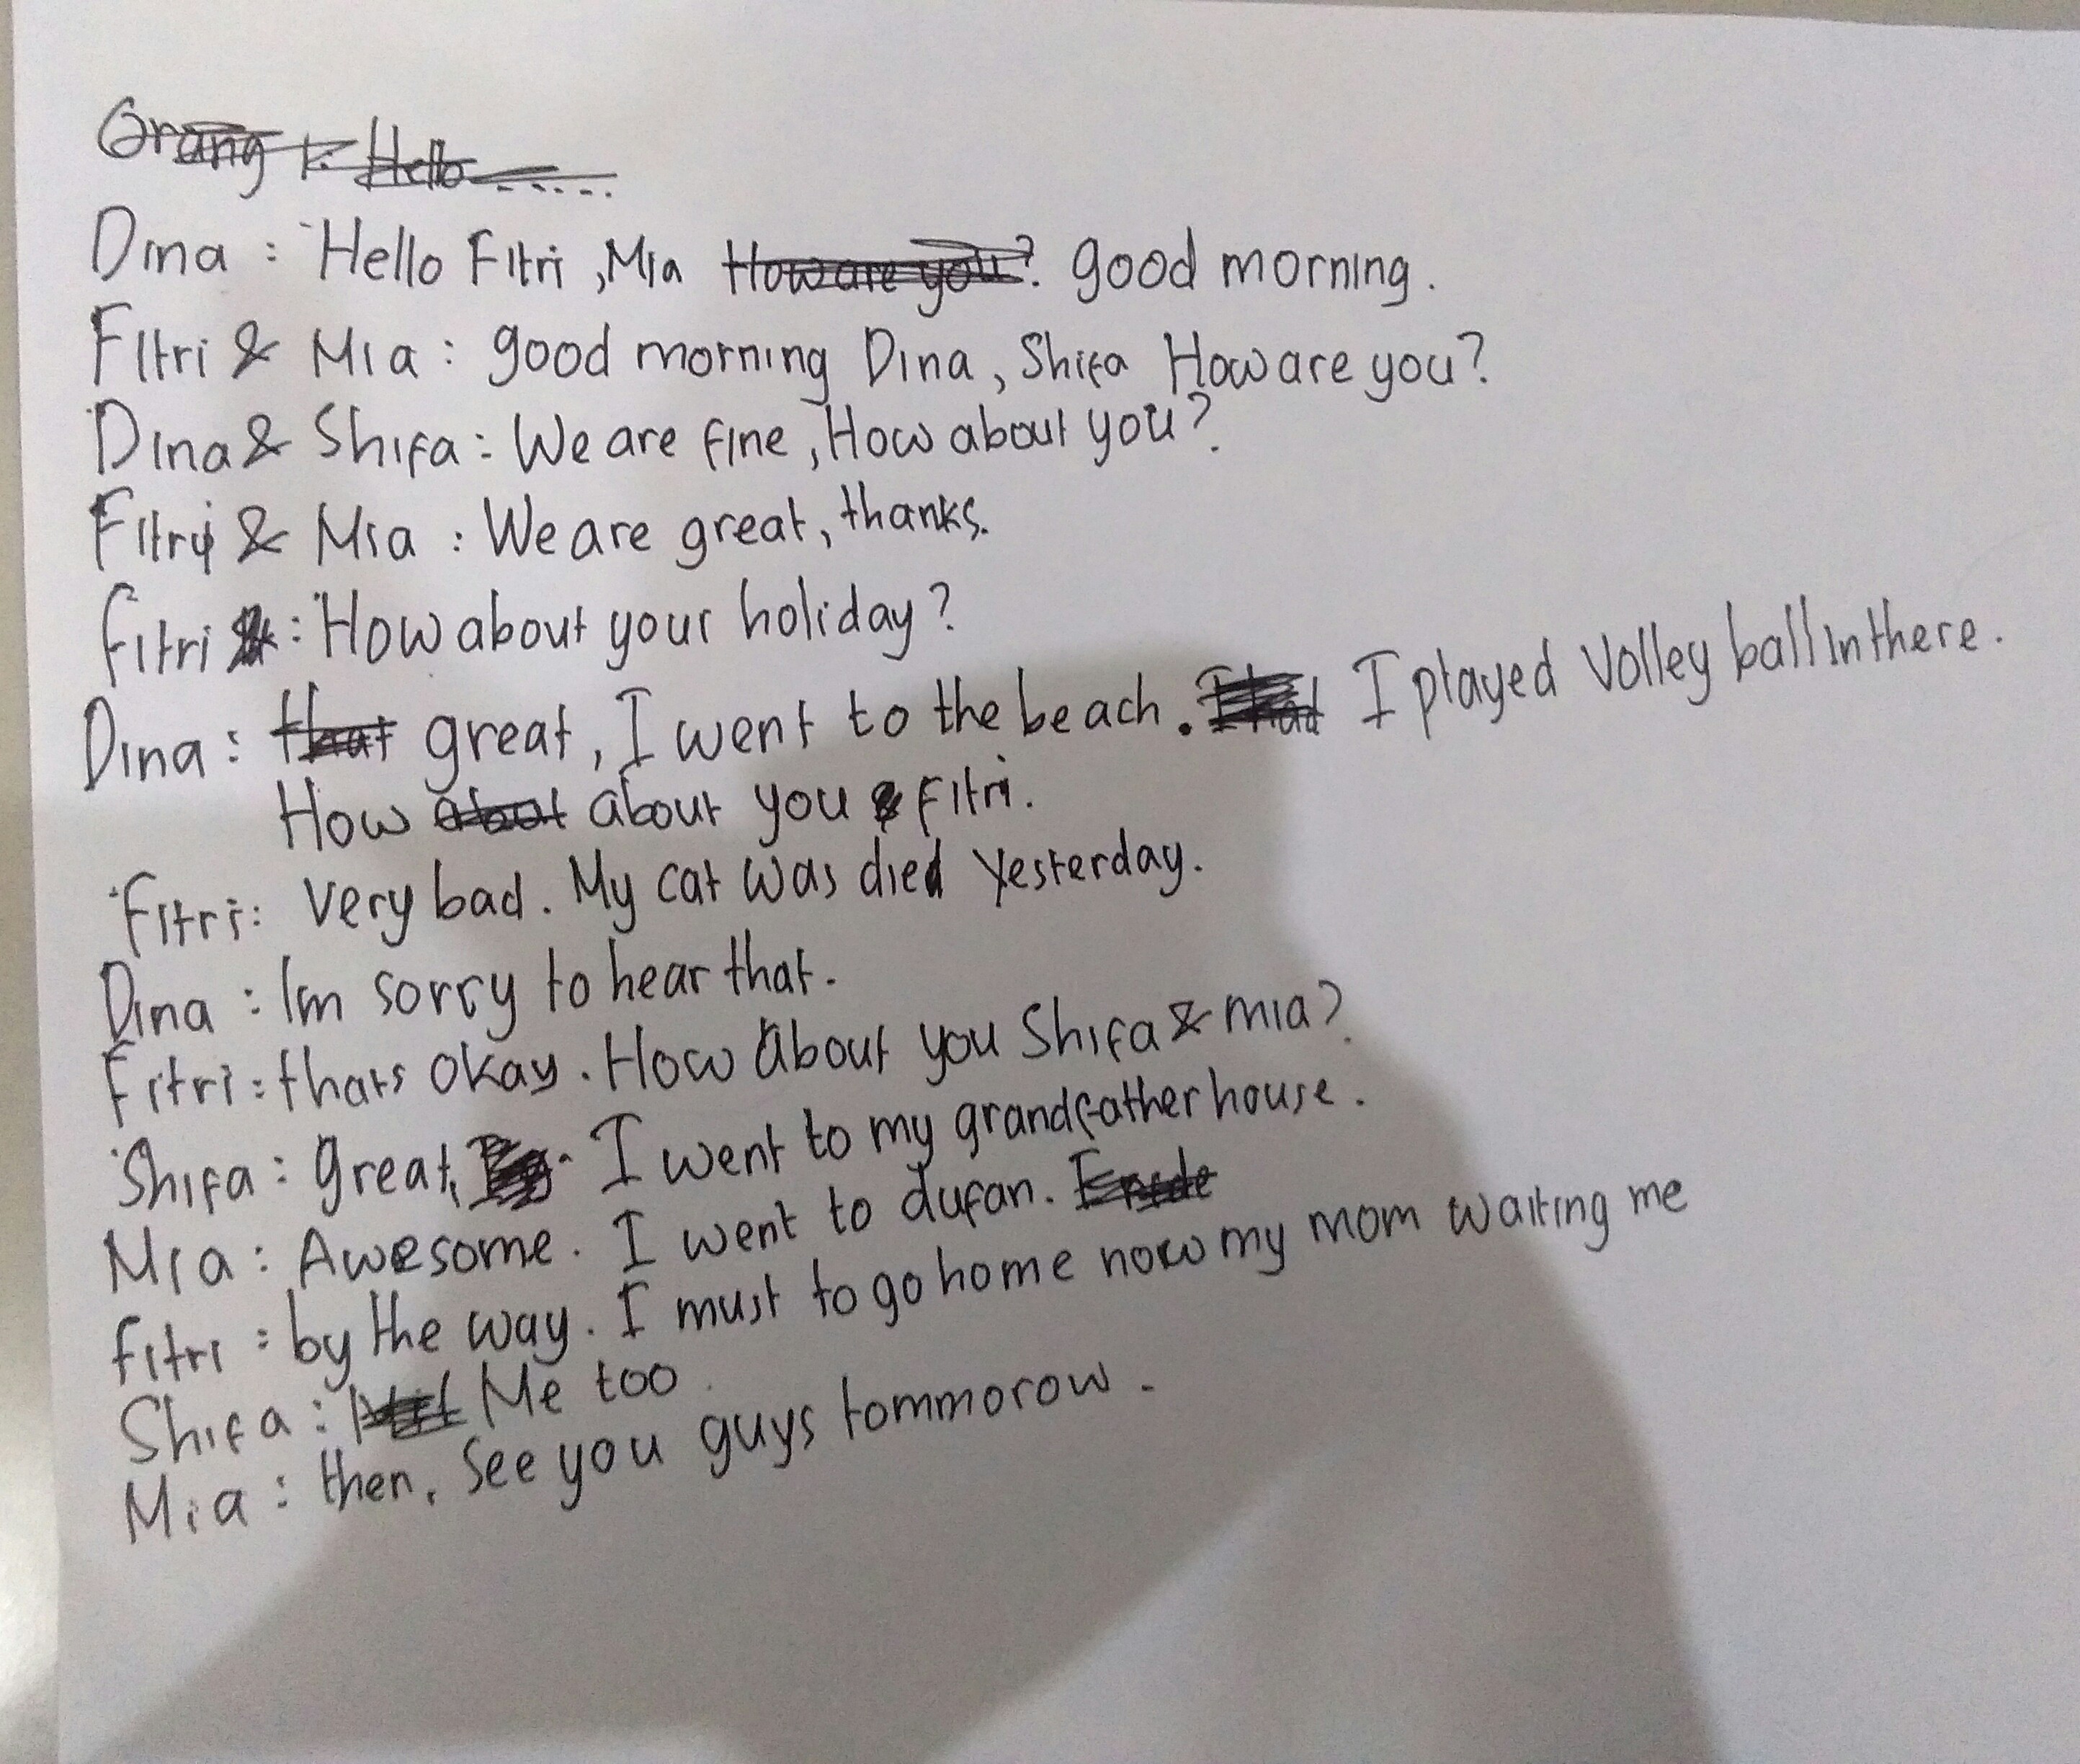 Orang 1: Hello ......
Dina : Hello Fitri, Mia How are you? good morning.
Fitri & Mia : good morning Dina, Shifa How are you?
Dina & Shifa : We are fine, How about you?
Fitri & Mia : We are great, thanks.
Fitri : How about your holiday?
Dina : that great, I went to the beach. I had I played Volley ball in there.
How about about you Fitri.
Fitri : Very bad. My cat was died yesterday.
Dina : Im sorry to hear that.
Fitri : thats okay. How about you Shifa & mia?
Shifa : great, I went to my grandfather house.
Mia : Awesome. I went to dufan.
Fitri : by the way. I must to go home now my mom waiting me
Shifa : Me too.
Mia : then, See you guys tommorow.